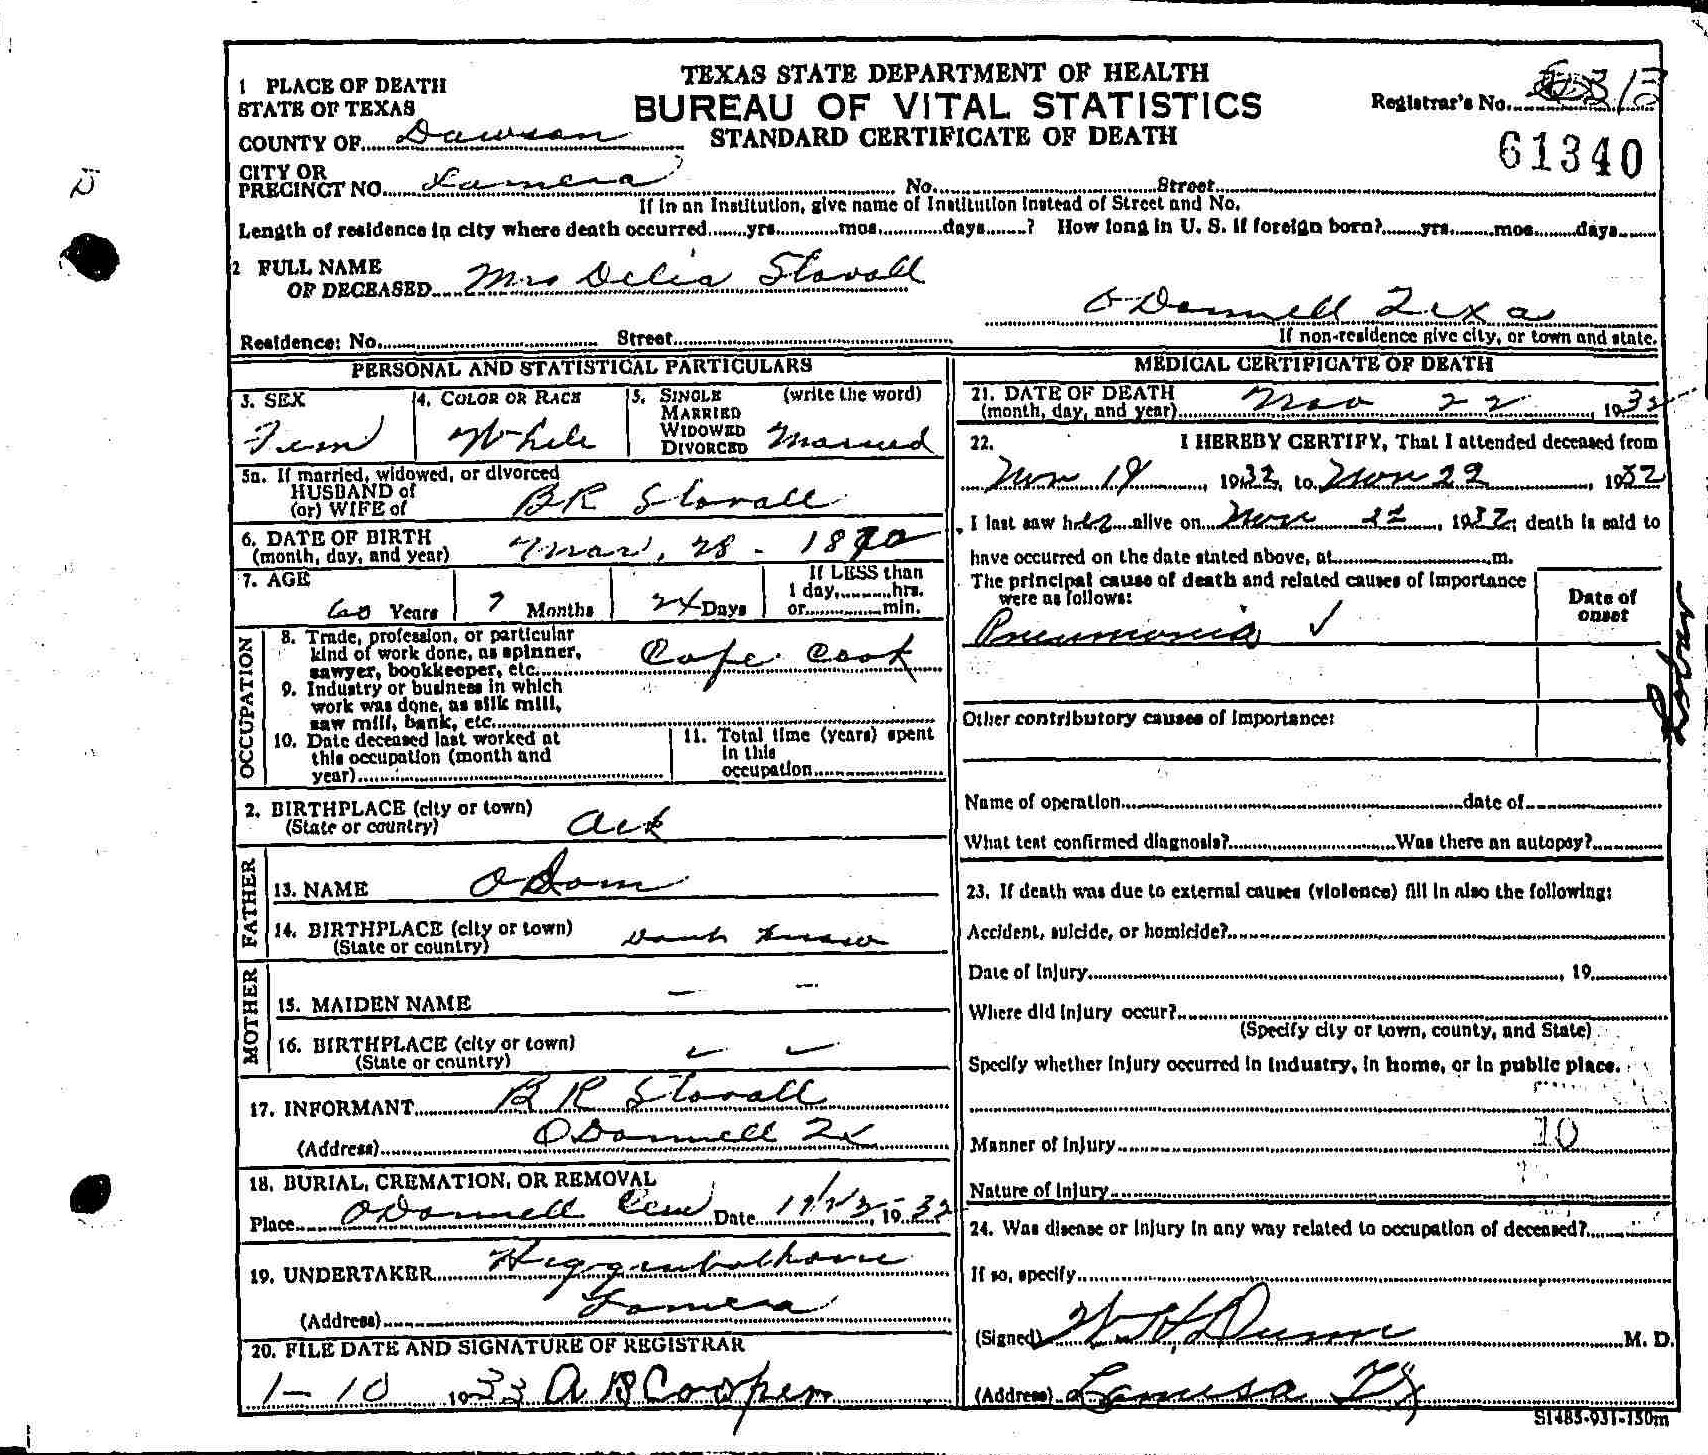 TEXAS STATE DEPARTMENT OF HEALTH
BUREAU OF VITAL STATISTICS
STANDARD CERTIFICATE OF DEATH
Registrar's No.
61340
1 PLACE OF DEATH
STATE OF TEXAS
COUNTY OF Dawson
CITY OR
PRECINCT NO. Lamesa No. Street
If in an Institution, give name of Institution instead of Street and No.
Length of residence in city where death occurred yrs. mos. days ? How long in U. S. if foreign born? yrs. mos. days
2 FULL NAME
OF DECEASED Mrs Delia Stovall
O'Donnell Texa
Residence: No. Street
If non-residence give city, or town and state.
PERSONAL AND STATISTICAL PARTICULARS
3. SEX
Fem
4. COLOR OR RACE
White
5. SINGLE (write the word)
MARRIED
WIDOWED
DIVORCED Married
5a. If married, widowed, or divorced
HUSBAND of
(or) WIFE of B R Stovall
6. DATE OF BIRTH
(month, day, and year) Mar, 28 - 18
7. AGE If LESS than
1 day, hrs.
60 Years 7 Months 24 Days or min.
OCCUPATION
8. Trade, profession, or particular
kind of work done, as spinner,
sawyer, bookkeeper, etc. Cafe Cook
9. Industry or business in which
work was done, as silk mill,
saw mill, bank, etc.
10. Date deceased last worked at
this occupation (month and
year)
11. Total time (years) spent
in this
occupation
2. BIRTHPLACE (city or town)
(State or country) Ark
FATHER
13. NAME O Dom
14. BIRTHPLACE (city or town)
(State or country)
MOTHER
15. MAIDEN NAME - -
16. BIRTHPLACE (city or town)
(State or country)
17. INFORMANT B R Stovall
(Address) O Donnell Tx
18. BURIAL, CREMATION, OR REMOVAL
Place O Donnell Cem Date 11/23, 1932
19. UNDERTAKER Higginbotham
(Address) Lamesa
20. FILE DATE AND SIGNATURE OF REGISTRAR
1-10 1933 A B Cooper
MEDICAL CERTIFICATE OF DEATH
21. DATE OF DEATH
(month, day, and year) Nov 22, 1932
22. I HEREBY CERTIFY, That I attended deceased from
Nov 19, 1932, to Nov 22, 1932
I last saw her alive on Nov, 1932; death is said to
have occurred on the date stated above, at m.
The principal cause of death and related causes of importance
were as follows:
Date of
onset
Pneumonia ✓
Other contributory causes of importance:
Name of operation date of
What test confirmed diagnosis? Was there an autopsy?
23. If death was due to external causes (violence) fill in also the following:
Accident, suicide, or homicide?
Date of injury, 19
Where did injury occur?
(Specify city or town, county, and State)
Specify whether injury occurred in industry, in home, or in public place.
Manner of injury 10
Nature of injury
24. Was disease or injury in any way related to occupation of deceased?
If so, specify
(Signed) W H Dunn M. D.
(Address) Lamesa Tx
S1485-931-150m